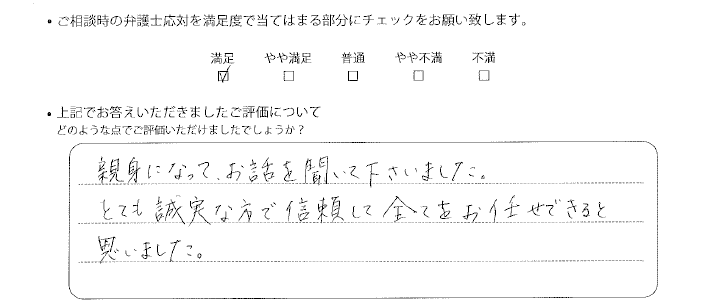 ・ご相談時の弁護士応対を満足度で当てはまる部分にチェックをお願い致します。
満足 やや満足 普通 やや不満 不満
☑ □ □ □ □
・上記でお答えいただきましたご評価について
どのような点でご評価いただけましたでしょうか?
親身になって、お話を聞いて下さいました。
とても誠実な方で信頼して全てをお任せできると
思いました。